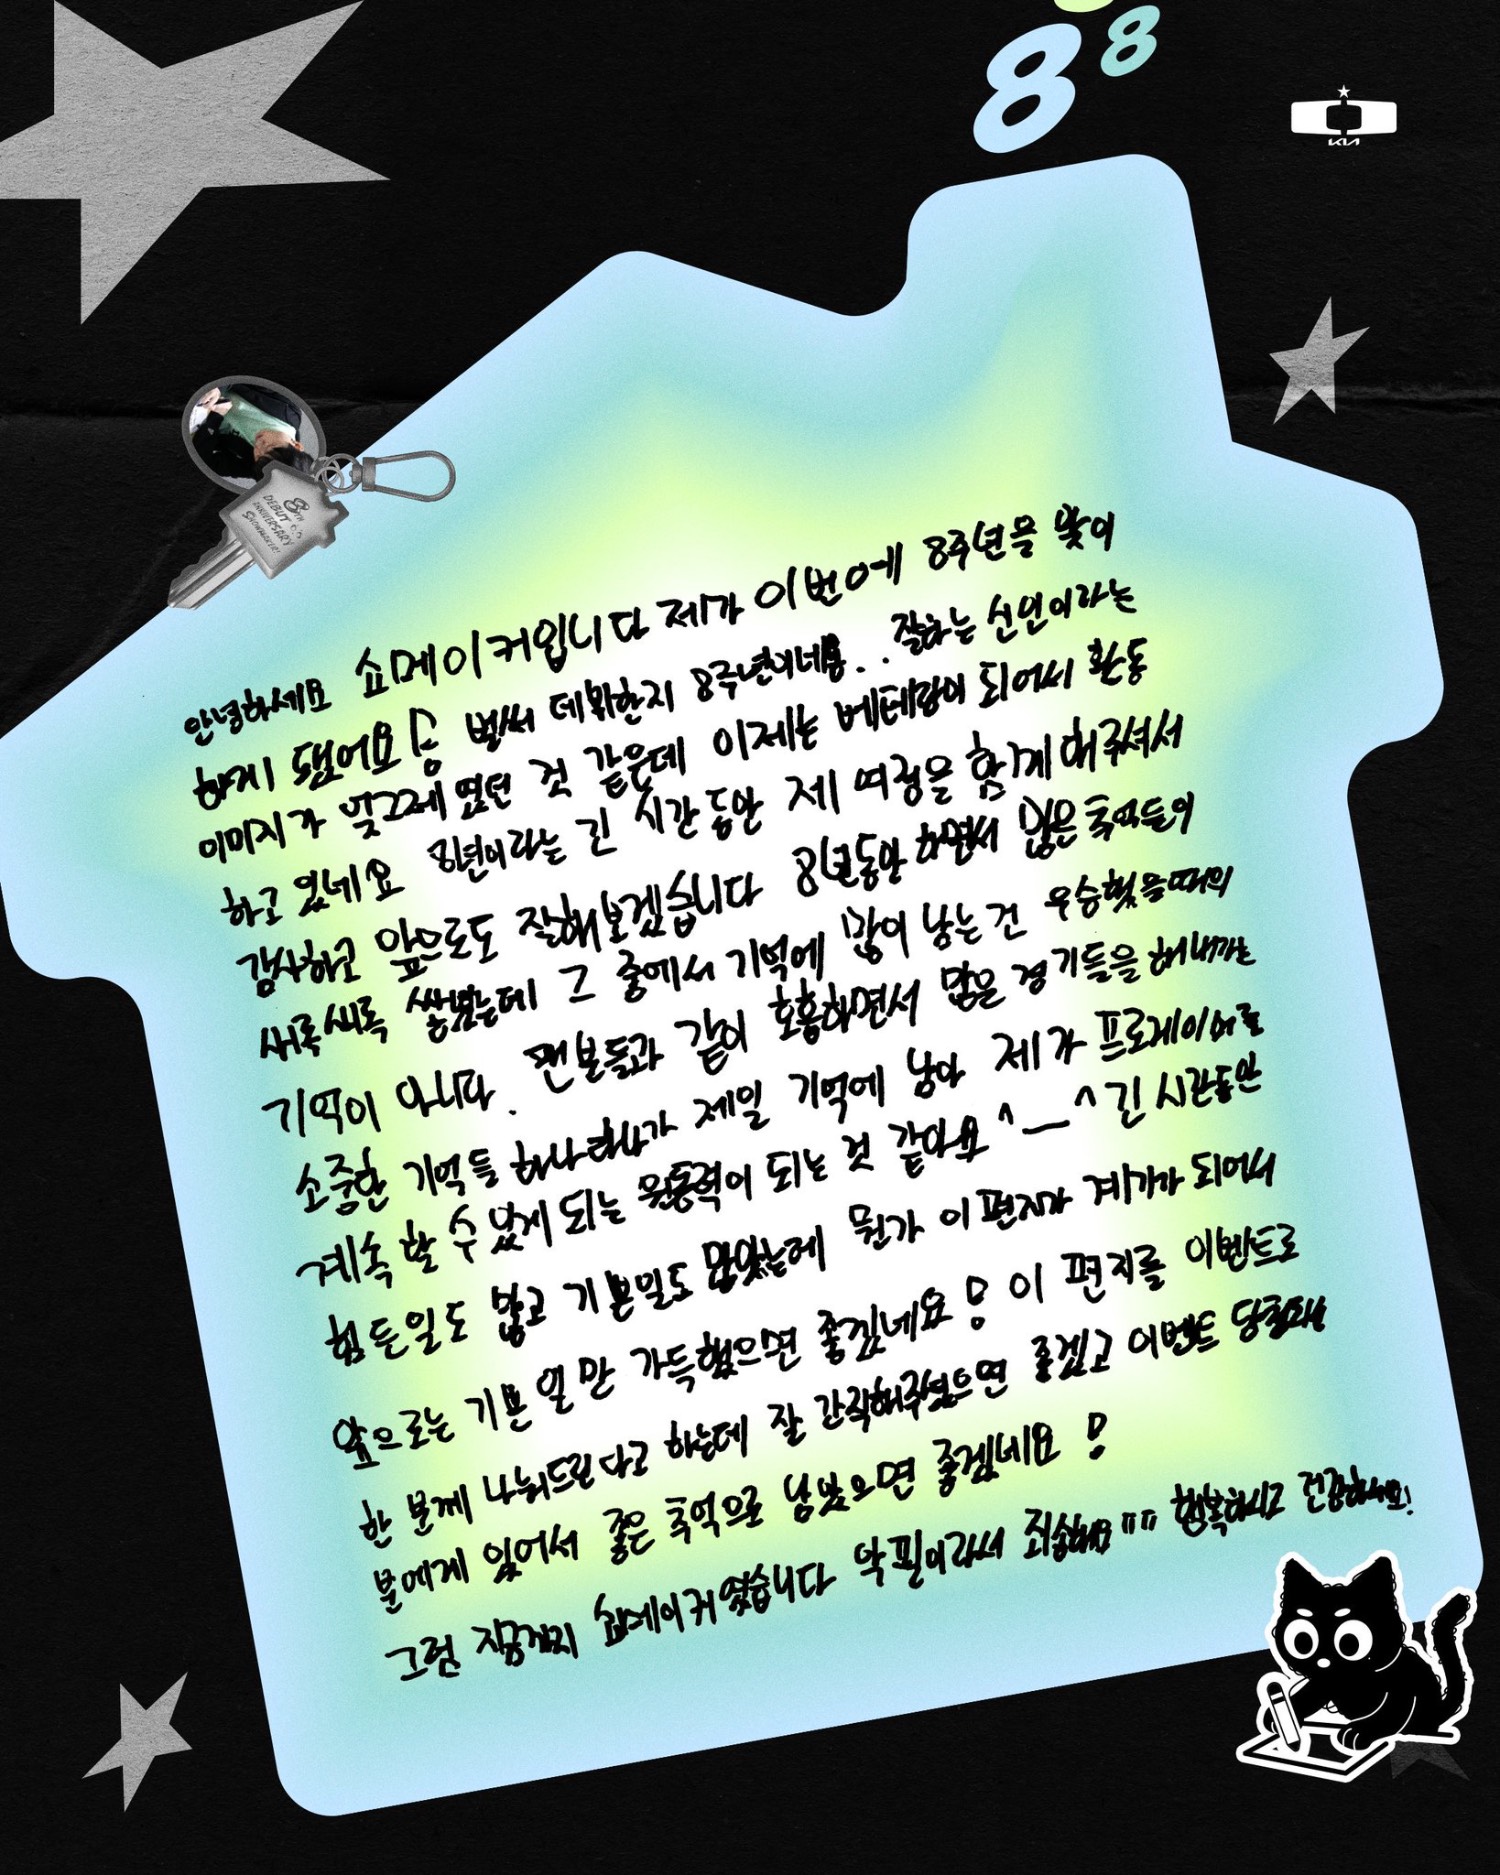 8
8
KIA
8TH
DEBUT
ANNIVERSARY
SHOWMAKER!
안녕하세요 쇼메이커입니다 제가 이번에 8주년을 맞이
하게 됐어요 벌써 데뷔한지 8주년이네요.. 잘하는 신인이라는
이미지가 엊그제였던 것 같은데 이제는 베테랑이 되어서 활동
하고 있네요 8년이라는 긴 시간동안 제 여정을 함께 해주셔서
감사하고 앞으로도 잘해보겠습니다 8년동안 하면서 많은 추억들이
새록새록 쌓였는데 그 중에서 기억에 많이 남는건 우승했을때의
기억이 아니라. 팬분들과 같이 호흡하면서 많은 경기들을 해내가는
소중한 기억들 하나하나가 제일 기억에 남아 제가 프로게이머를
계속 할 수 있게 되는 원동력이 되는 것 같아요^ㅡ^ 긴 시간동안
힘든일도 많고 기쁜일도 많았는데 뭔가 이 편지가 계기가 되어서
앞으로는 기쁜 일만 가득했으면 좋겠네요! 이 편지를 이벤트로
한 분께 나눠드린다고 하는데 잘 간직해주셨으면 좋겠고 이벤트 당첨되신
분에게 있어서 좋은 추억으로 남았으면 좋겠네요!
그럼 지금까지 쇼메이커였습니다 악필이라서 죄송해요ㅠㅠ 행복하시고 건강하세요!